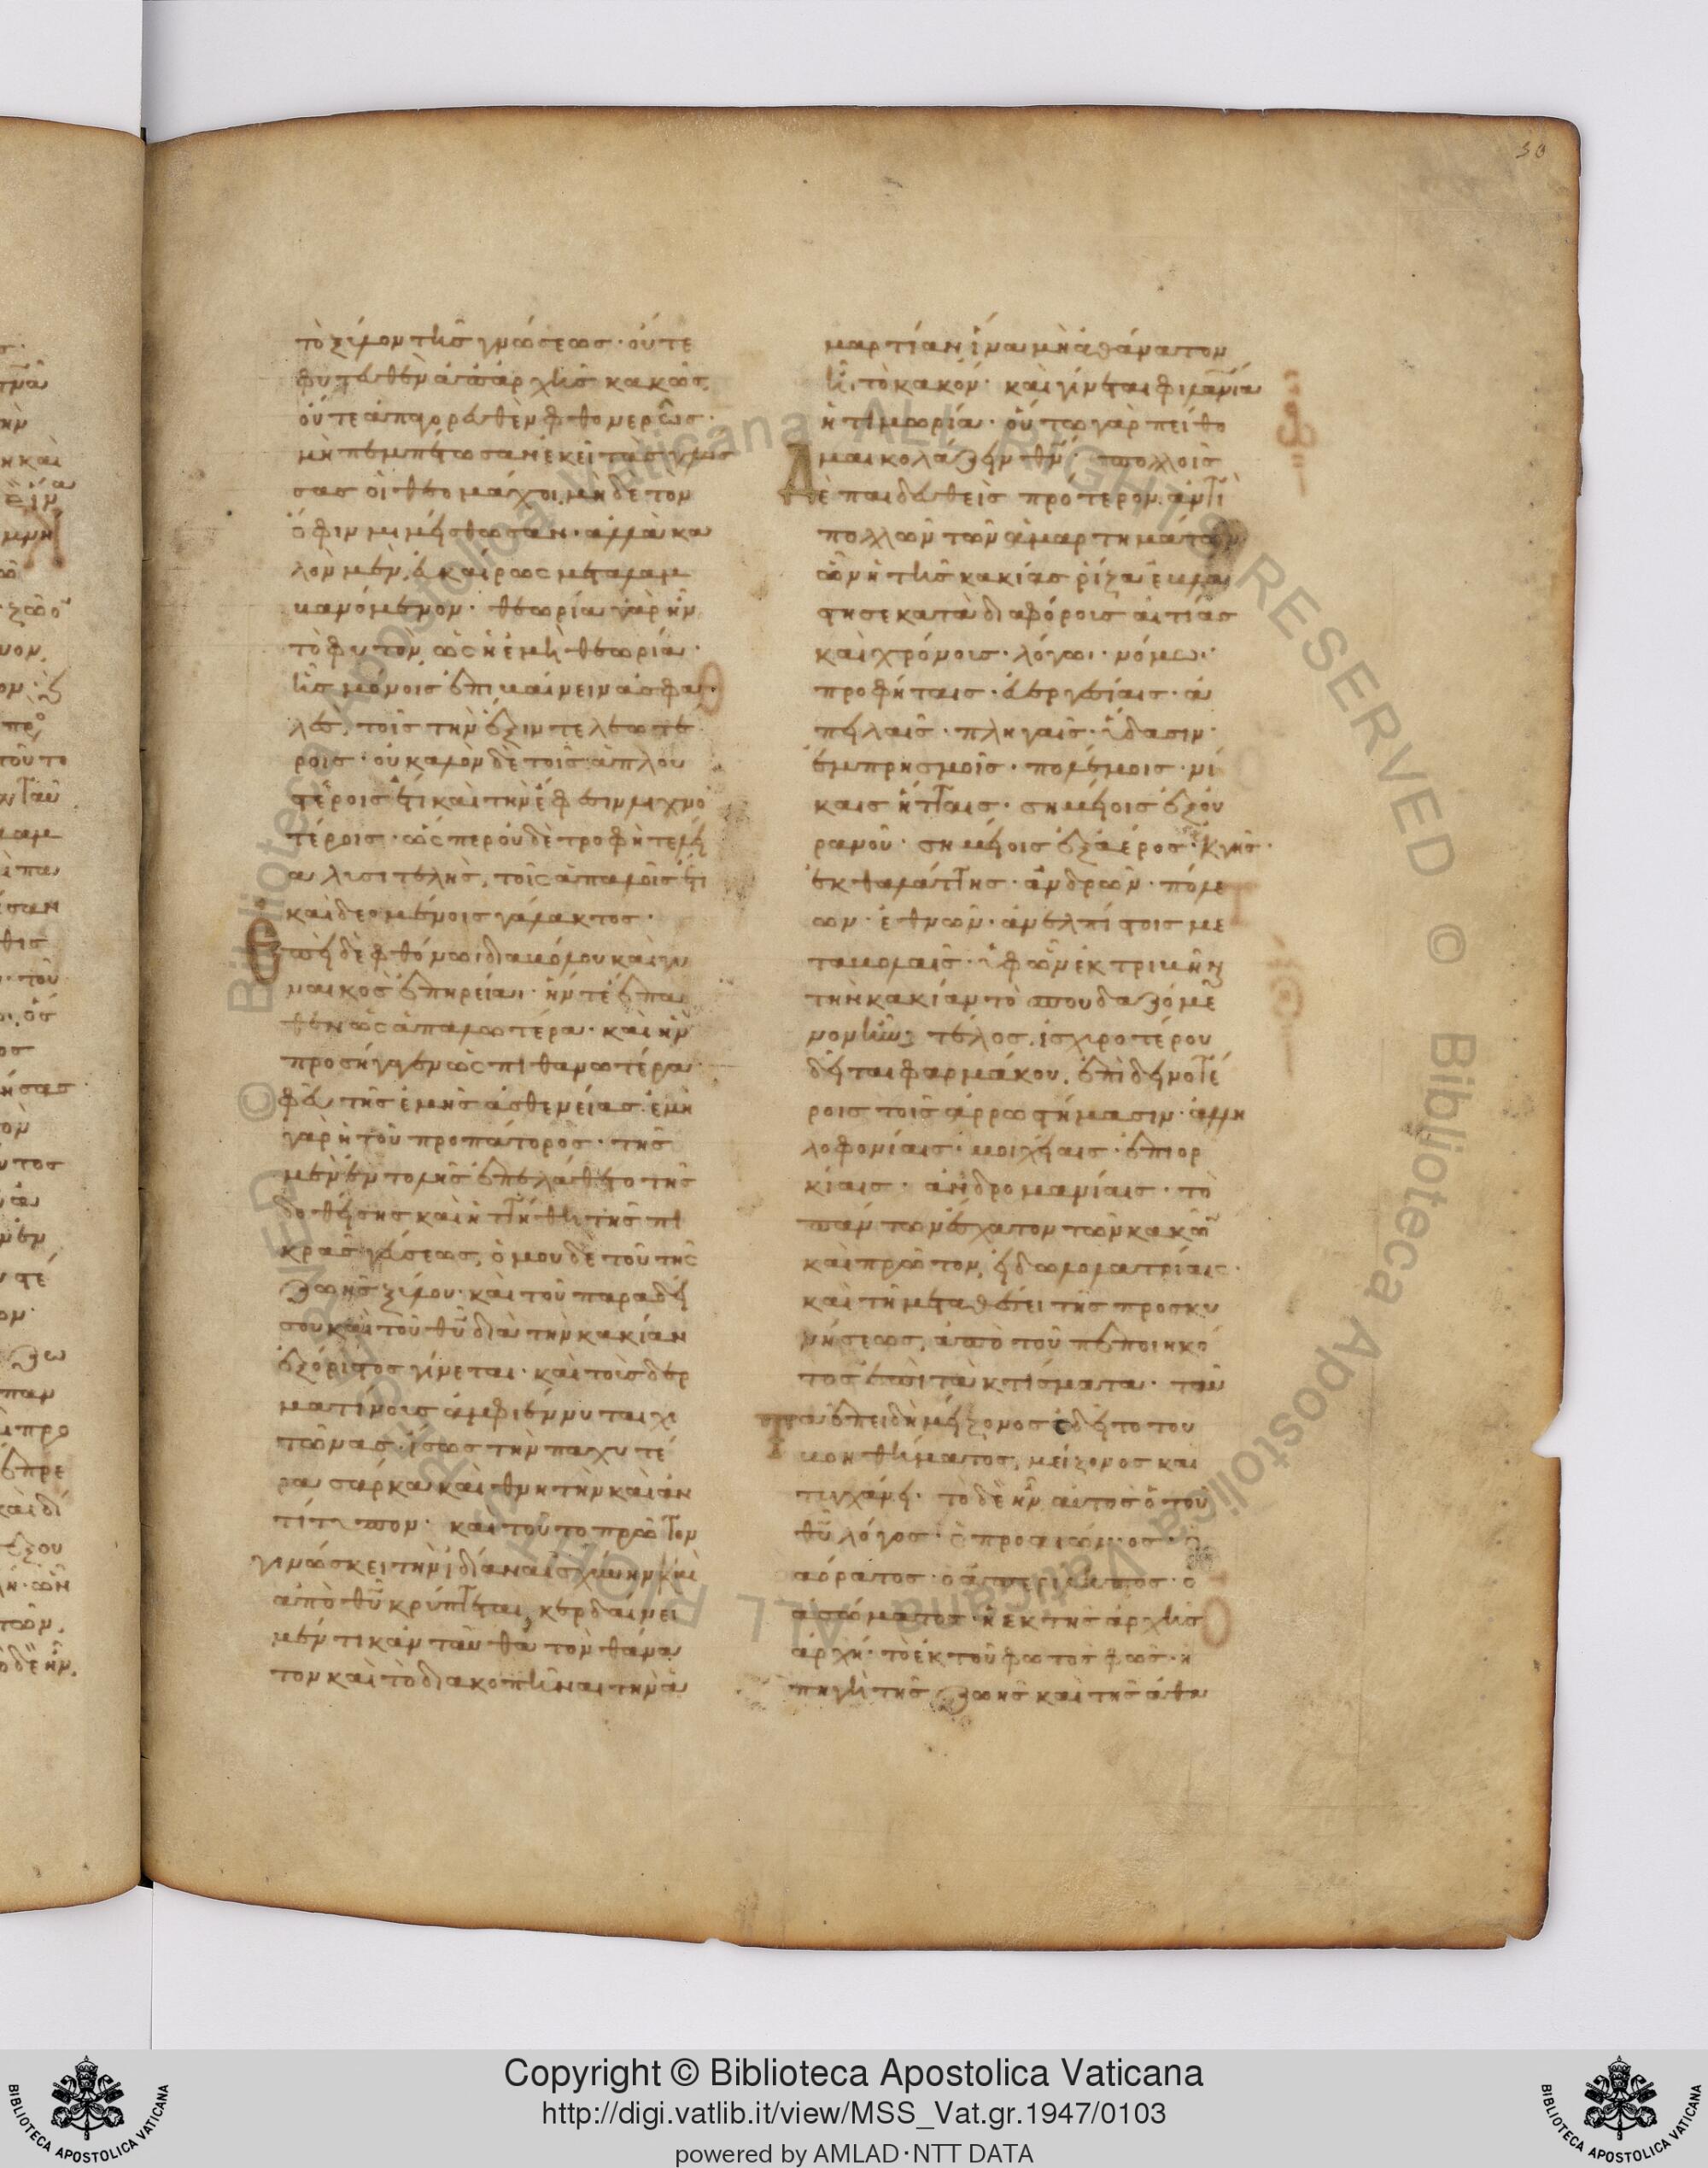 τὸ ξύλον τῆς γνώσεως· οὔτε
φυτευθὲν ἀπαρχῆς κακῶς,
οὔτε ἀπαγορευθὲν φθονερῶς·
μὴ πεμπέτωσαν ἐκεῖ τὰς γλώσ
σας οἱ θεομάχοι, μηδὲ τὸν
ὄφιν μιμείσθωσαν· ἀλλὰ κα
λὸν μὲν, εὐκαίρως μεταλαμ
βανόμενον· θεωρία γὰρ ἦν
τὸ φυτὸν, ὡς ἡ ἐμὴ θεωρία·
ἧς μόνοις ἐπιβαίνειν ἀσφα
λὲς, τοῖς τὴν ἕξιν τελεωτέ
ροις· οὐ καλὸν δὲ τοῖς ἁπλου
στέροις ἔτι καὶ τὴν ἔφεσιν λιχνο
τέροις· ὥσπερ οὐδὲ τροφὴ τελεί
α λυσιτελὴς, τοῖς ἁπαλοῖς ἔτι
καὶ δεομένοις γάλακτος·
Ἐπεὶ δὲ φθόνωι διαβόλου καὶ γυ
ναικὸς ἐπηρείαι· ἥν τε ἔπα
θεν ὡς ἁπαλωτέρα· καὶ ἣν
προσήγαγεν ὡς πιθανωτέρα·
φεῦ τῆς ἐμῆς ἀσθενείας· ἐμὴ
γὰρ ἡ τοῦ προπάτορος· τῆς
μὲν ἐντολῆς ἐπελάθετο τῆς
δοθείσης καὶ ἡττήθη τῆς πι
κρᾶς γεύσεως, ὁμοῦ δὲ τοῦ τῆς
ζωῆς ξύλου· καὶ τοῦ παραδεί
σου καὶ τοῦ θῦ διὰ τὴν κακίαν
ἐξόριστος γίνεται· καὶ τοὺς δερ
ματίνους ἀμφιέννυται χι
τῶνας· ἴσως τὴν παχυτέ
ραν σάρκα καὶ θνητὴν καὶ ἀν
τίτυπον· καὶ τοῦτο πρῶτον
γινώσκει τὴν ἰδίαν αἰσχύνην καὶ
ἀπὸ θῦ κρύπτεται, κερδαίνει
μέν τι κἀνταῦθα τὸν θάνα
τον καὶ τὸ διακοπῆναι τὴν ἁ
μαρτίαν ἵνα μὴ ἀθάνατον
ἦι τὸ κακόν· καὶ γίνεται φιλανία
ἡ τιμωρία· οὕτω γὰρ πείθο
μαι κολάζειν θν· πολλοῖς
Δὲ παιδευθεὶς πρότερον ἀντὶ
πολλῶν τῶν ἁμαρτημάτων
ὧν ἡ τῆς κακίας ῥίζα ἐβλά
στησε κατὰ διαφόροις αἰτίας
καὶ χρόνοις· λόγωι· νόμωι·
προφήταις· εὐεργεσίαις· ἀ
πειλαῖς· πληγαῖς· ὕδασιν·
ἐμπρησμοῖς· πολέμοις· νί
καις ἥτταις· σημείοις ἐξ οὐ
ρανοῦ· σημείοις ἐξ ἀέρος· ἐκ γῆς·
ἐκ θαλάττης· ἀνδρῶν· πόλε
ων· ἐθνῶν· ἀνελπίστοις με
ταβολαῖς· ὑφ' ὧν ἐκτριβῆναι
τὴν κακίαν τὸ σπουδαζόμε
νον ἦν, τέλος, ἰσχυροτέρου
δεῖται φαρμάκου, ἐπὶ δεινοτέ
ροις τοῖς ἀρρωστήμασιν· ἀλλη
λοφονίαις· μοιχείαις· ἐπιορ
κίαις· ἀνδρομανίαις· τὸ
πάντων ἔσχατον τῶν κακῶν
καὶ πρῶτον, εἰδωλολατρίαις·
καὶ τῆι μεταθέσει τῆς προσκυ
νήσεως, ἀπὸ τοῦ πεποιηκό
τος ἐπὶ τὰ κτίσματα· ταῦ
τα ἐπειδὴ μείζονος ἐδεῖτο τοῦ
βοηθήματος, μείζονος καὶ
τυγχάνει· τὸ δὲ ἦν αὐτὸς ὁ τοῦ
θῦ λόγος· ὁ προαιώνιος· ὁ
ἀόρατος· ὁ ἀπερίληπτος· ὁ
ἀσώματος· ἡ ἐκ τῆς ἀρχῆς
ἀρχή· τὸ ἐκ τοῦ φωτὸς φῶς· ἡ
πηγὴ τῆς ζωῆς καὶ τῆς ἀθα
Copyright © Biblioteca Apostolica Vaticana
http://digi.vatlib.it/view/MSS_Vat.gr.1947/0103
powered by AMLAD·NTT DATA